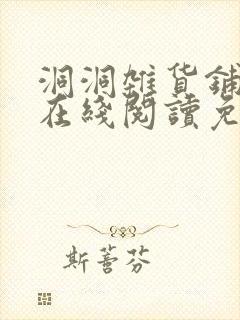 洞洞雜貨鋪
在綫閱讀免
斯蕾芬